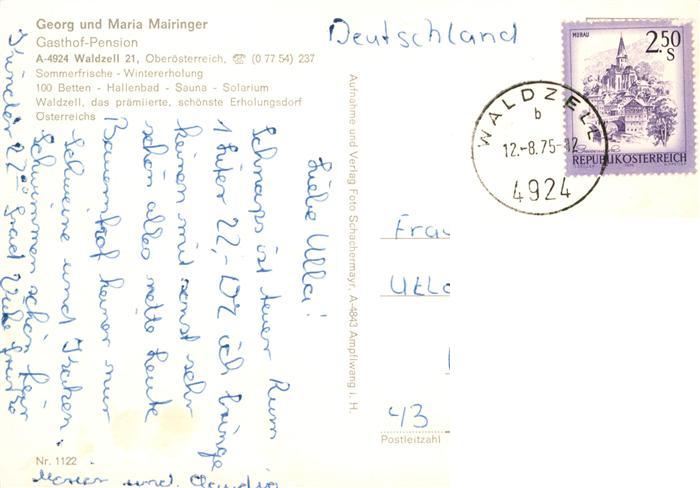 Georg und Maria Mairinger
Gasthof-Pension
A-4924 Waldzell 21, Oberösterreich, ☎ (0 77 54) 237
Sommerfrische - Wintererholung
100 Betten - Hallenbad - Sauna - Solarium
Waldzell, das prämiierte, schönste Erholungsdorf
Österreichs
Deutschland
MURAU
2.50
S
REPUBLIK ÖSTERREICH
WALDZELL
b
12.-8.75-12
4924
Liebe Ulla!
Schnaps ist teuer Rum
1 Liter 22,- DM ich bringe
keinen mit sonst sehr
schön alles nette Leute
Bauernhof keiner nur
Schweine und Katzen
Schwimmen schön für
Kinder 22-° Grad Viele Grüße
Marion und Claudia
Aufnahme und Verlag Foto Schachermayr, A-4843 Ampflwang i. H.
Frau
43
Postleitzahl
Nr. 1122